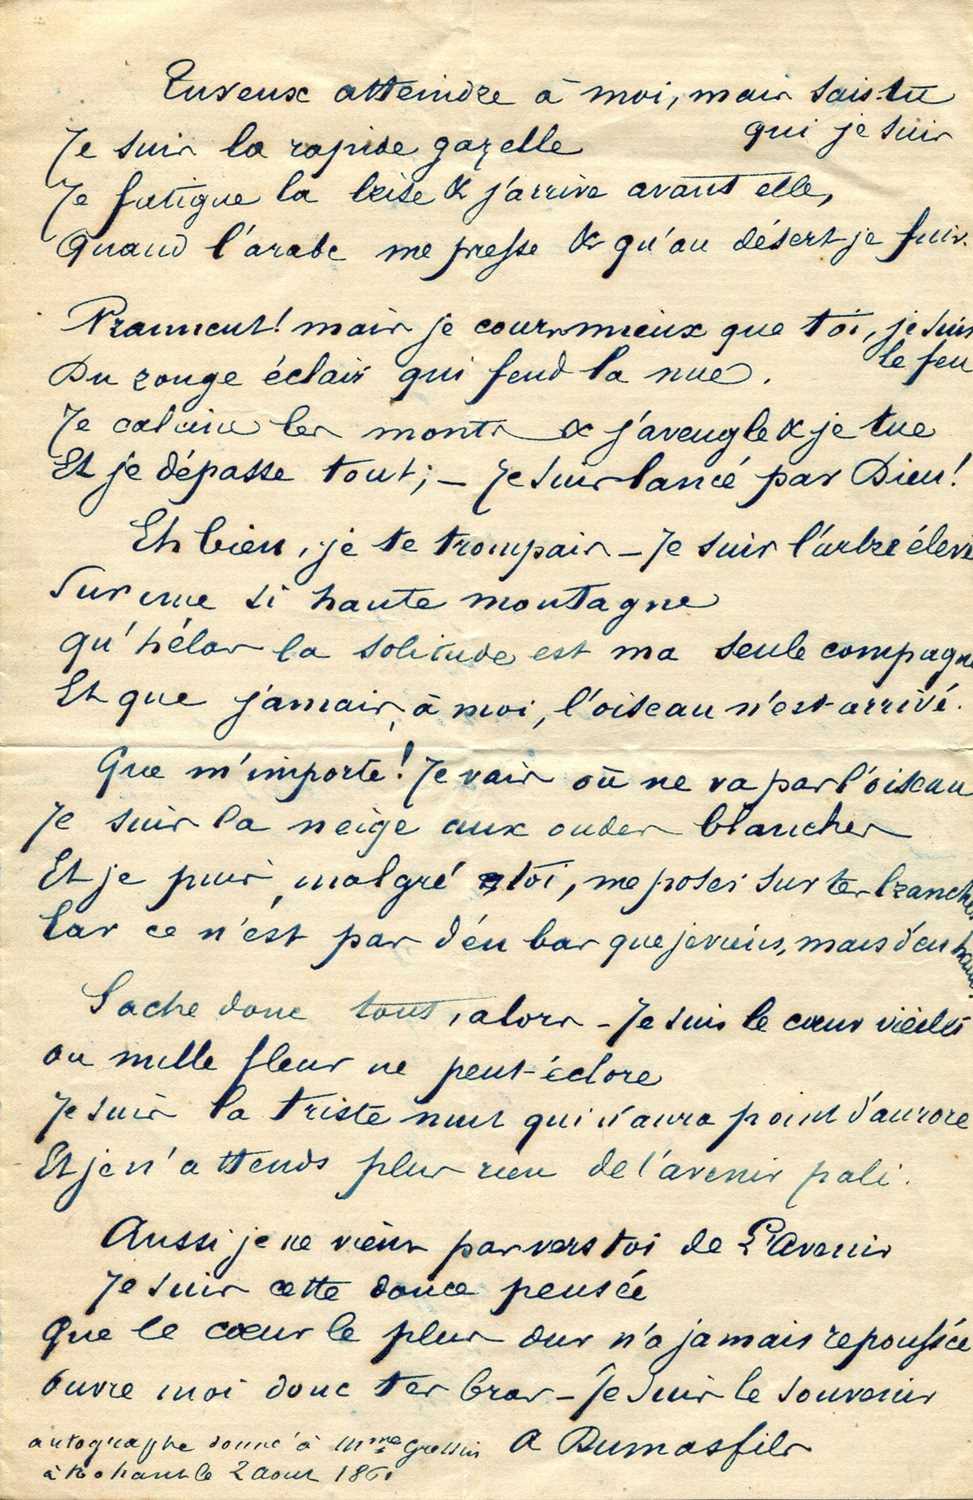 Tu veux atteindre à moi, mais sais-tu
qui je suis
Je suis la rapide gazelle
Je fatigue la brise & j'arrive avant elle,
Quand l'arabe me presse & qu'au désert je fuis.
Vraiment! mais je cours mieux que toi, je suis
le feu
Du rouge éclair qui fend la nue.
Je calcine les monts & j'aveugle & je tue
Et je dépasse tout; – Je suis lancé par Dieu!
Eh bien, je te trompais – Je suis l'arbre élevé
Sur une si haute montagne
qu'hélas la solitude est ma seule compagne
Et que jamais, à moi, l'oiseau n'est arrivé.
Que m'importe! Je vais où ne va pas l'oiseau
Je suis la neige aux ondes blanches
Et je puis, malgré toi, me poser sur tes branches
Car ce n'est pas d'en bas que je viens, mais d'en haut!
Sache donc tout, alors – Je suis le cœur vieilli
ou mille fleur ne peut éclore
Je suis la triste nuit qui n'aura point d'aurore
Et je n'attends plus rien de l'avenir pali.
Aussi je ne viens pas vers toi de L'Avenir
Je suis cette douce pensée
Que le cœur le plus dur n'a jamais repoussée
Ouvre moi donc tes bras – Je suis le souvenir
A Dumas fils
autographe donné à Mme
à Nohant le 2 aout